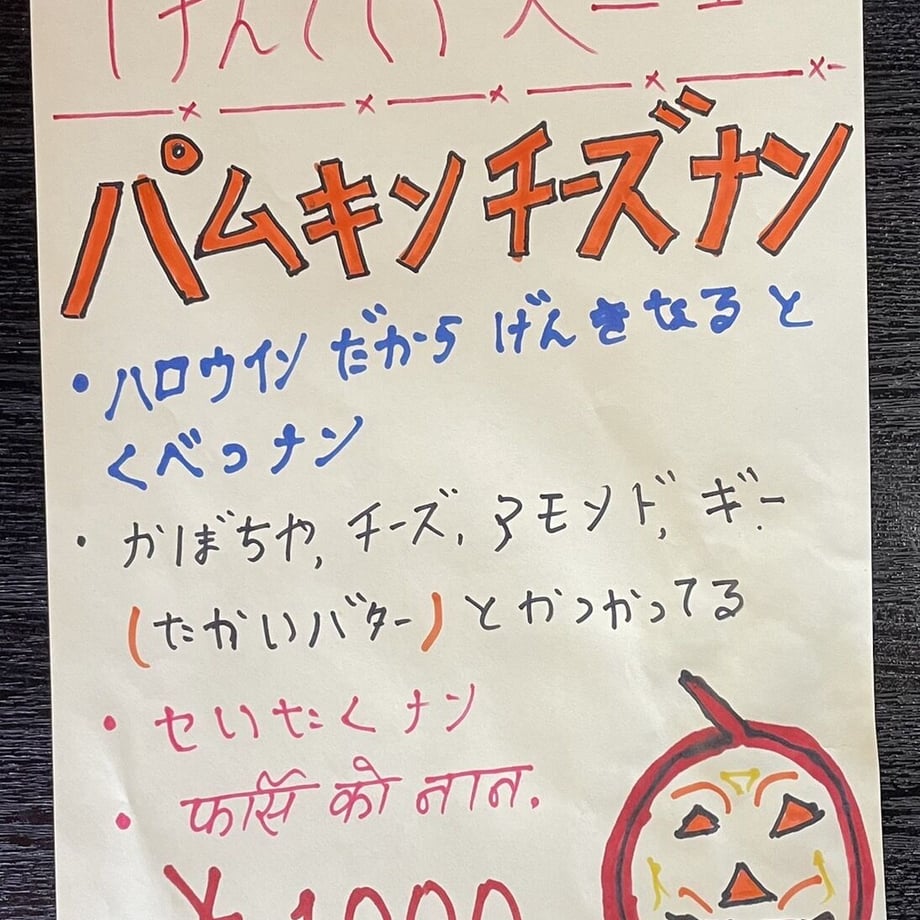 げんてい メニュー
パムキンチーズナン
・ハロウイン だから げんきなる と
くべつナン
・かぼちや, チーズ, アモンド, ギー
(たかいバター) とかつかってる
・せいたくナン
・फार्सी को नान.
¥1000